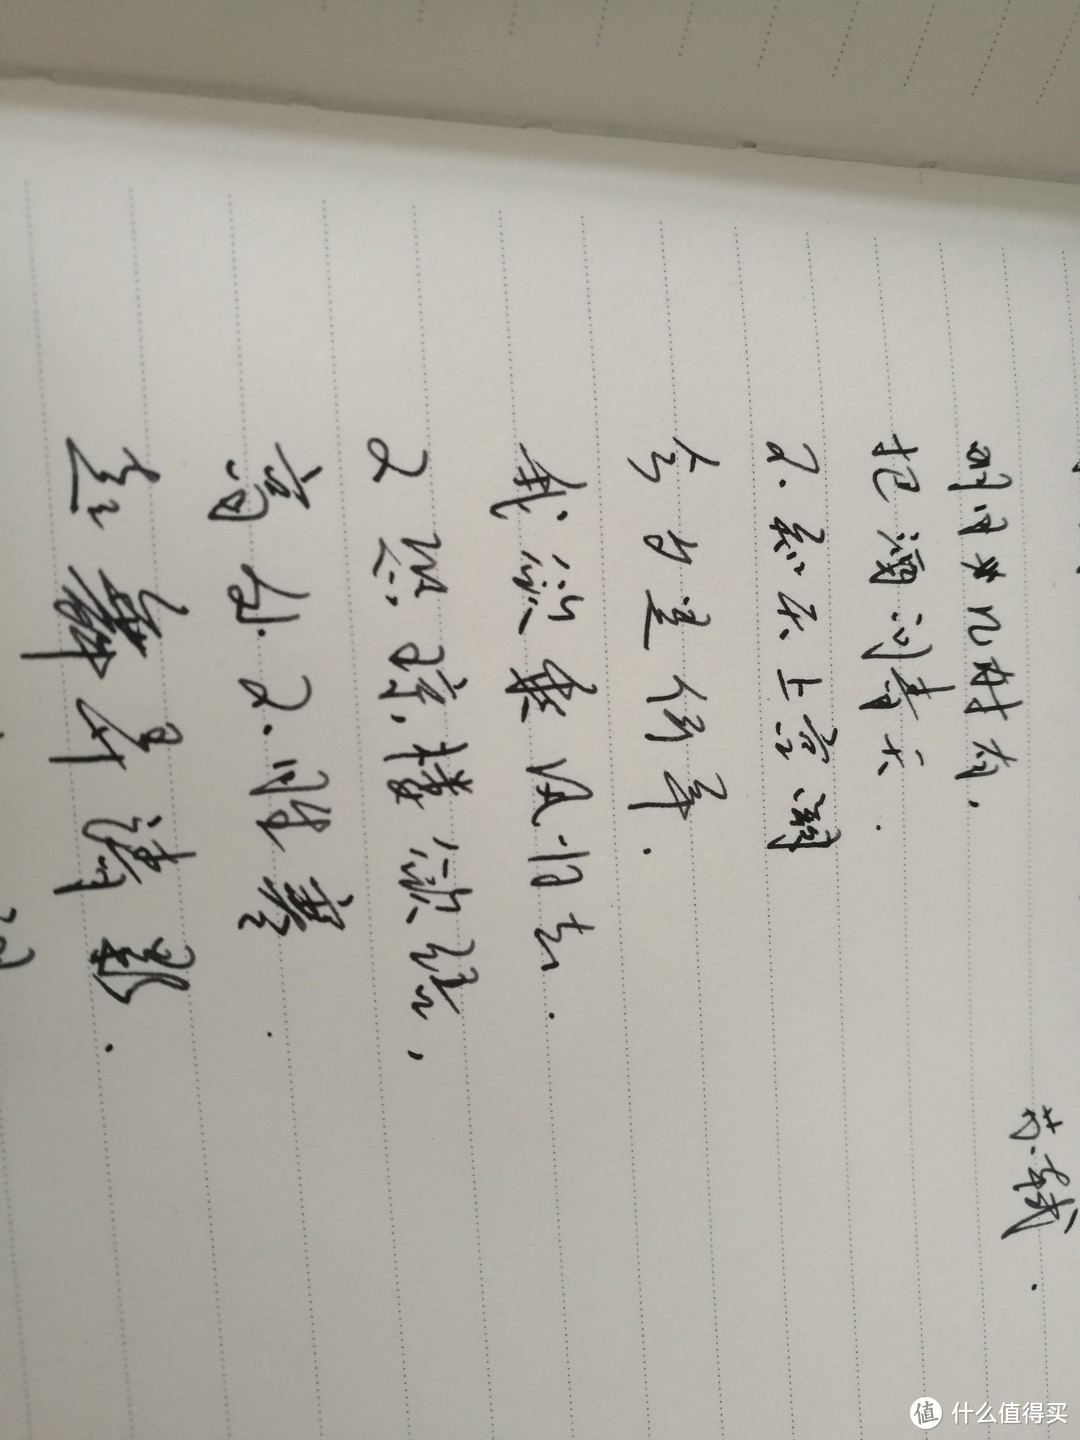 苏轼.
明月几时有,
把酒问青天.
不知天上宫阙
今夕是何年.
我欲乘风归去.
又恐琼楼欲宇,
高处不胜寒.
起舞弄清影.
值 什么值得买